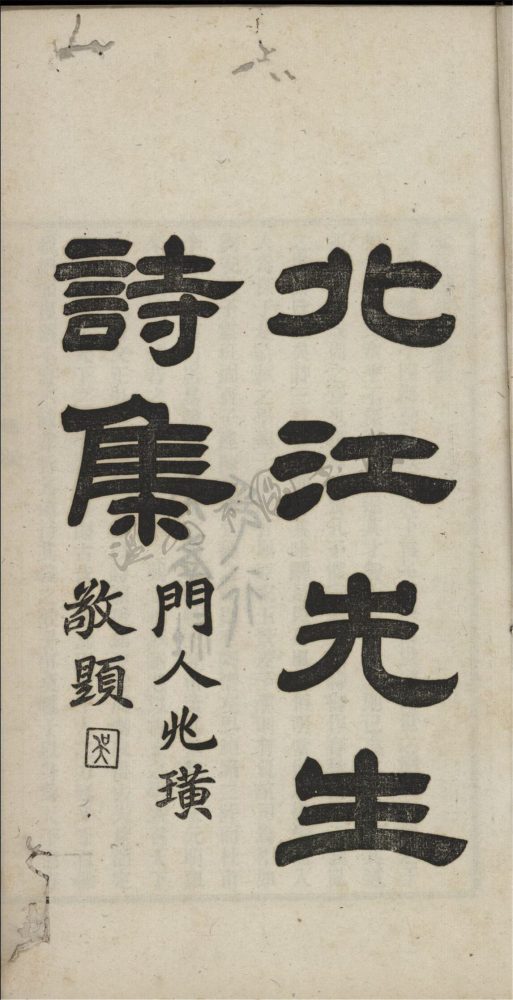 北江先生
詩集
門人兆璜
敬題